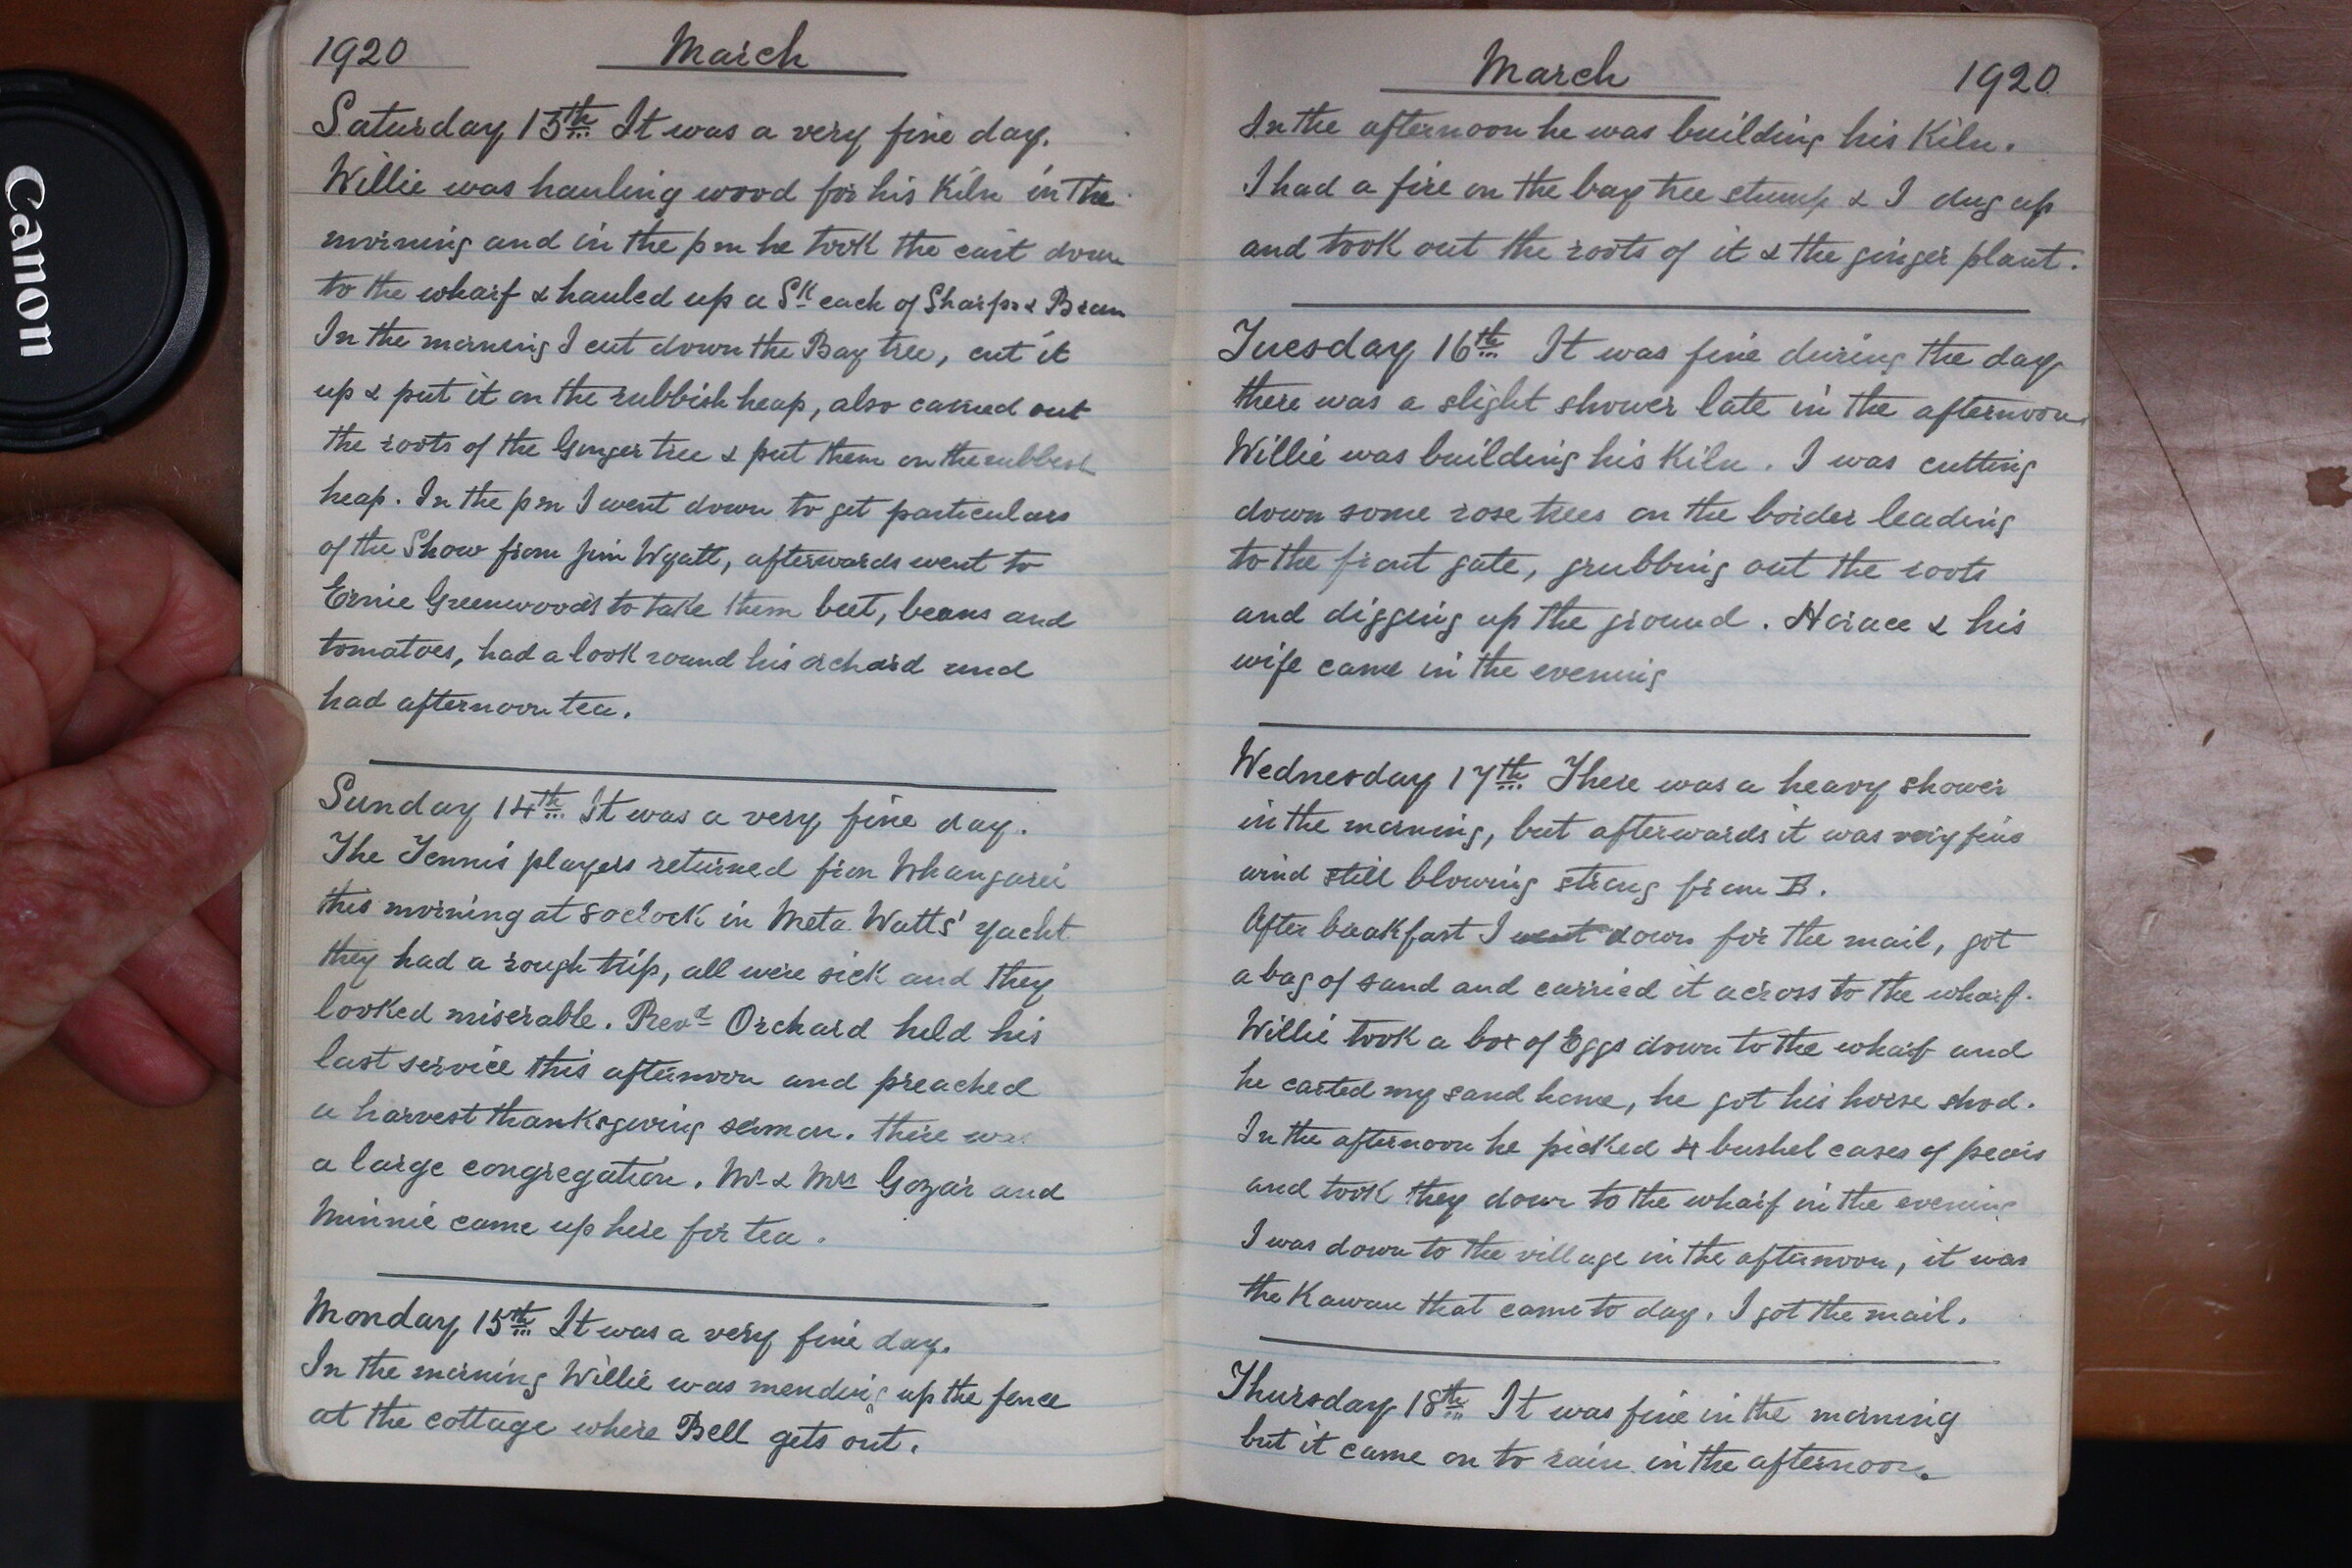 Canon
1920 March
Saturday 13th It was a very fine day.
Willie was hauling wood for his Kiln in the
morning and in the pm he took the cart down
to the wharf & hauled up a Sk each of Sharps & Bran
In the morning I cut down the Bay tree, cut it
up & put it on the rubbish heap, also carried out
the roots of the Ginger tree & put them on the rubbish
heap. In the pm I went down to get particulars
of the Show from Jim Wyatt, afterwards went to
Ernie Greenwoods to take them beet, beans and
tomatoes, had a look round his orchard and
had afternoon tea.
Sunday 14th It was a very fine day.
The Tennis players returned from Whangarei
this morning at 8 oclock in Meta Watts' yacht
they had a rough trip, all were sick and they
looked miserable. Revd Orchard held his
last service this afternoon and preached
a harvest thanksgiving sermon. There was
a large congregation. Mr & Mrs Gozar and
Minnie came up here for tea.
Monday 15th It was a very fine day.
In the morning Willie was mending up the fence
at the cottage where Bell gets out.
March 1920
In the afternoon he was building his Kiln.
I had a fire on the bay tree stump & I dug up
and took out the roots of it & the ginger plant.
Tuesday 16th It was fine during the day
there was a slight shower late in the afternoon
Willie was building his Kiln. I was cutting
down some rose trees on the border leading
to the front gate, grubbing out the roots
and digging up the ground. Horace & his
wife came in the evening
Wednesday 17th There was a heavy shower
in the morning, but afterwards it was very fine
wind still blowing strong from E.
After breakfast I went down for the mail, got
a bag of sand and carried it across to the wharf.
Willie took a box of Eggs down to the wharf and
he carted my sand home, he got his horse shod.
In the afternoon he picked 4 bushel cases of pears
and took they down to the wharf in the evening
I was down to the village in the afternoon, it was
the Kawau that came to day. I got the mail.
Thursday 18th It was fine in the morning
but it came on to rain in the afternoon.